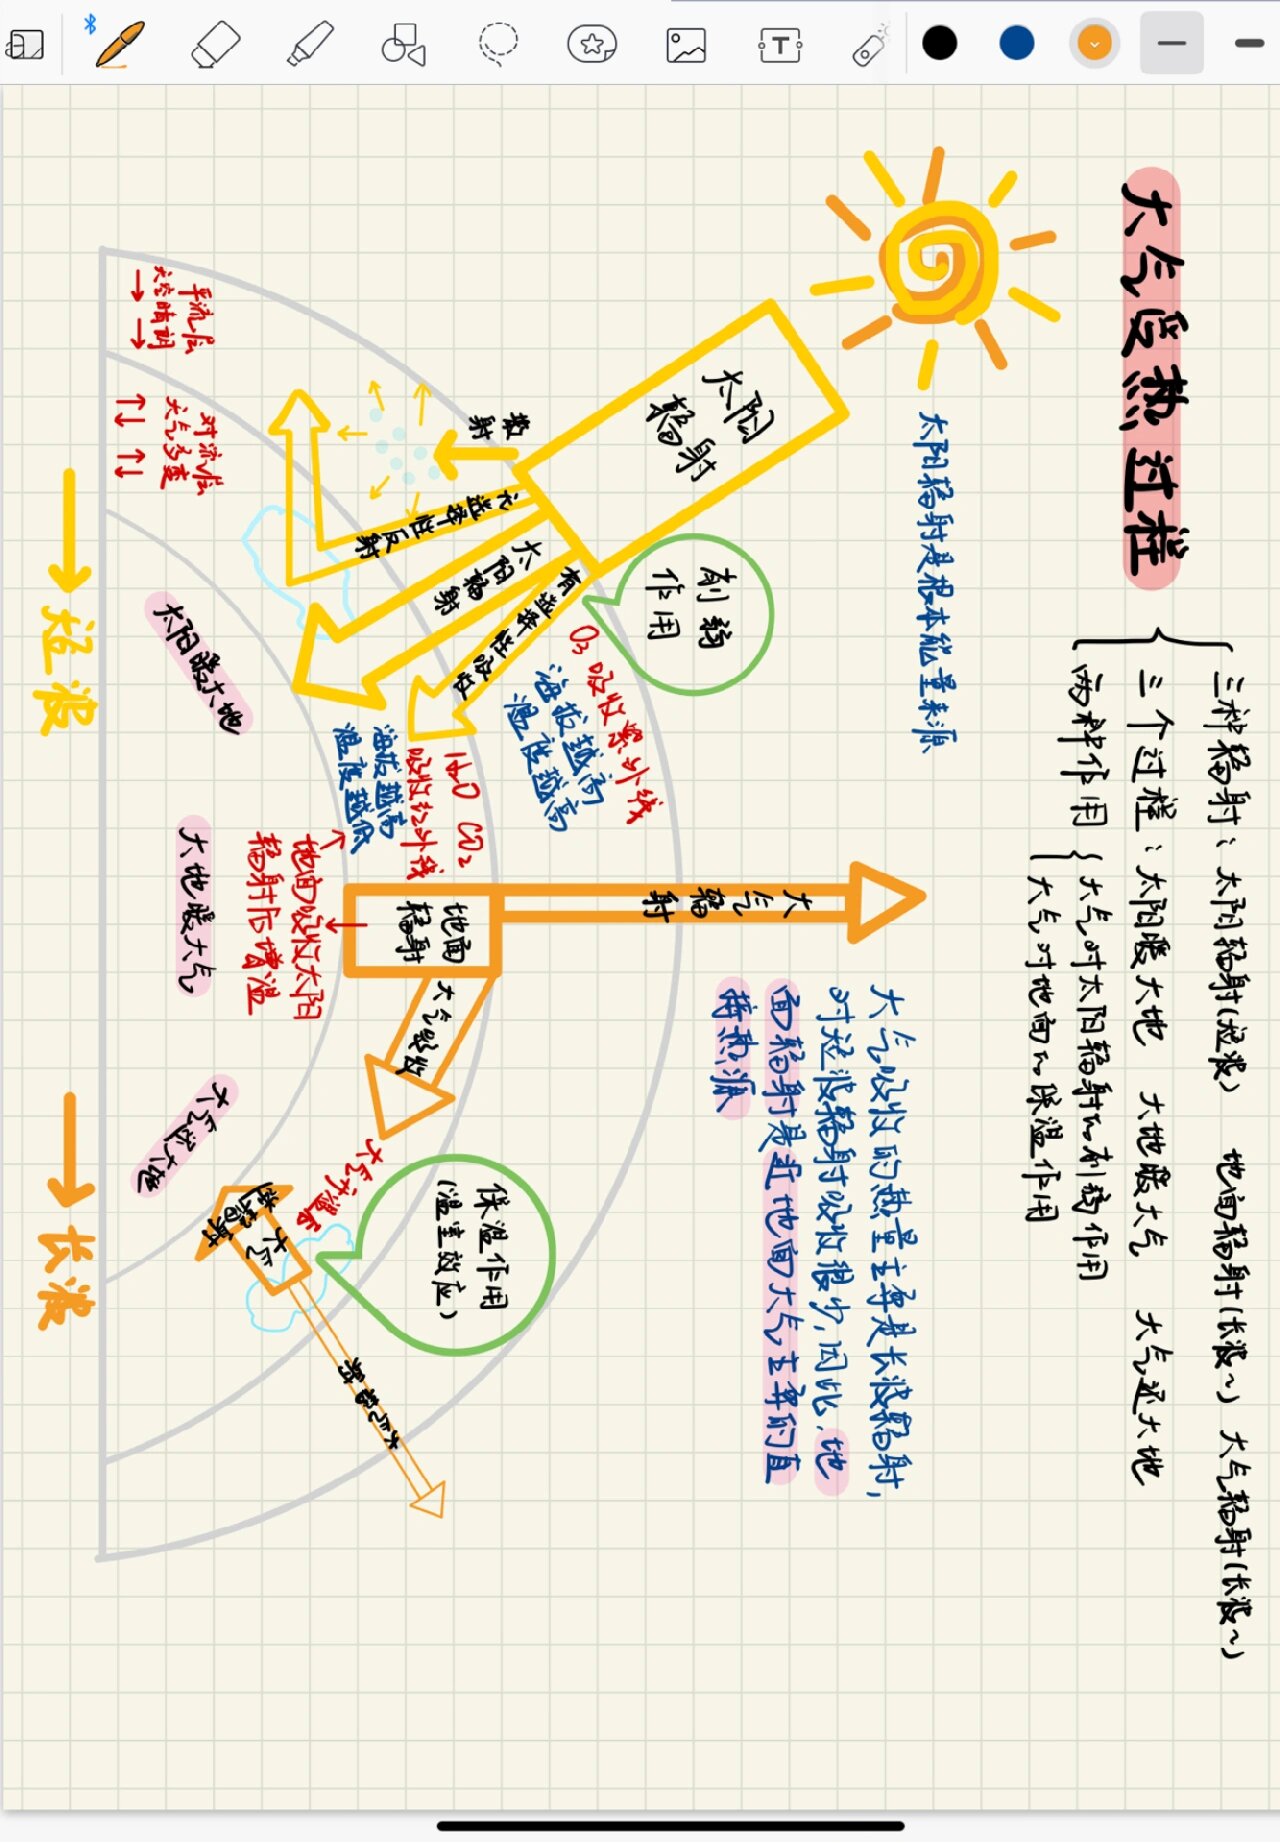 大气受热过程
三种辐射：太阳辐射(短波) 地面辐射(长波~) 大气辐射(长波~)
三个过程：太阳暖大地 大地暖大气 大气还大地
两种作用
大气对太阳辐射的削弱作用
大气对地面的保温作用
太阳辐射是根本能量来源
太阳
辐射
削弱
作用
散
射
无选择性反射
太阳辐射
有选择性吸收
O₃吸收紫外线
海拔越高
温度越高
H₂O CO₂
吸收红外线
海拔越高
温度越低
平流层
天空晴朗
对流层
天气多变
太阳暖大地
短波
大气辐射
地面
辐射
地面吸收太阳
辐射后增温
大地暖大气
大气吸收
大气吸收的热量主要是长波辐射，
对短波辐射吸收很少，因此，地
面辐射是近地面大气主要的直
接热源
大气升温后
保温作用
(温室效应)
大气
逆辐射
大气辐射
大气还大地
长波
T